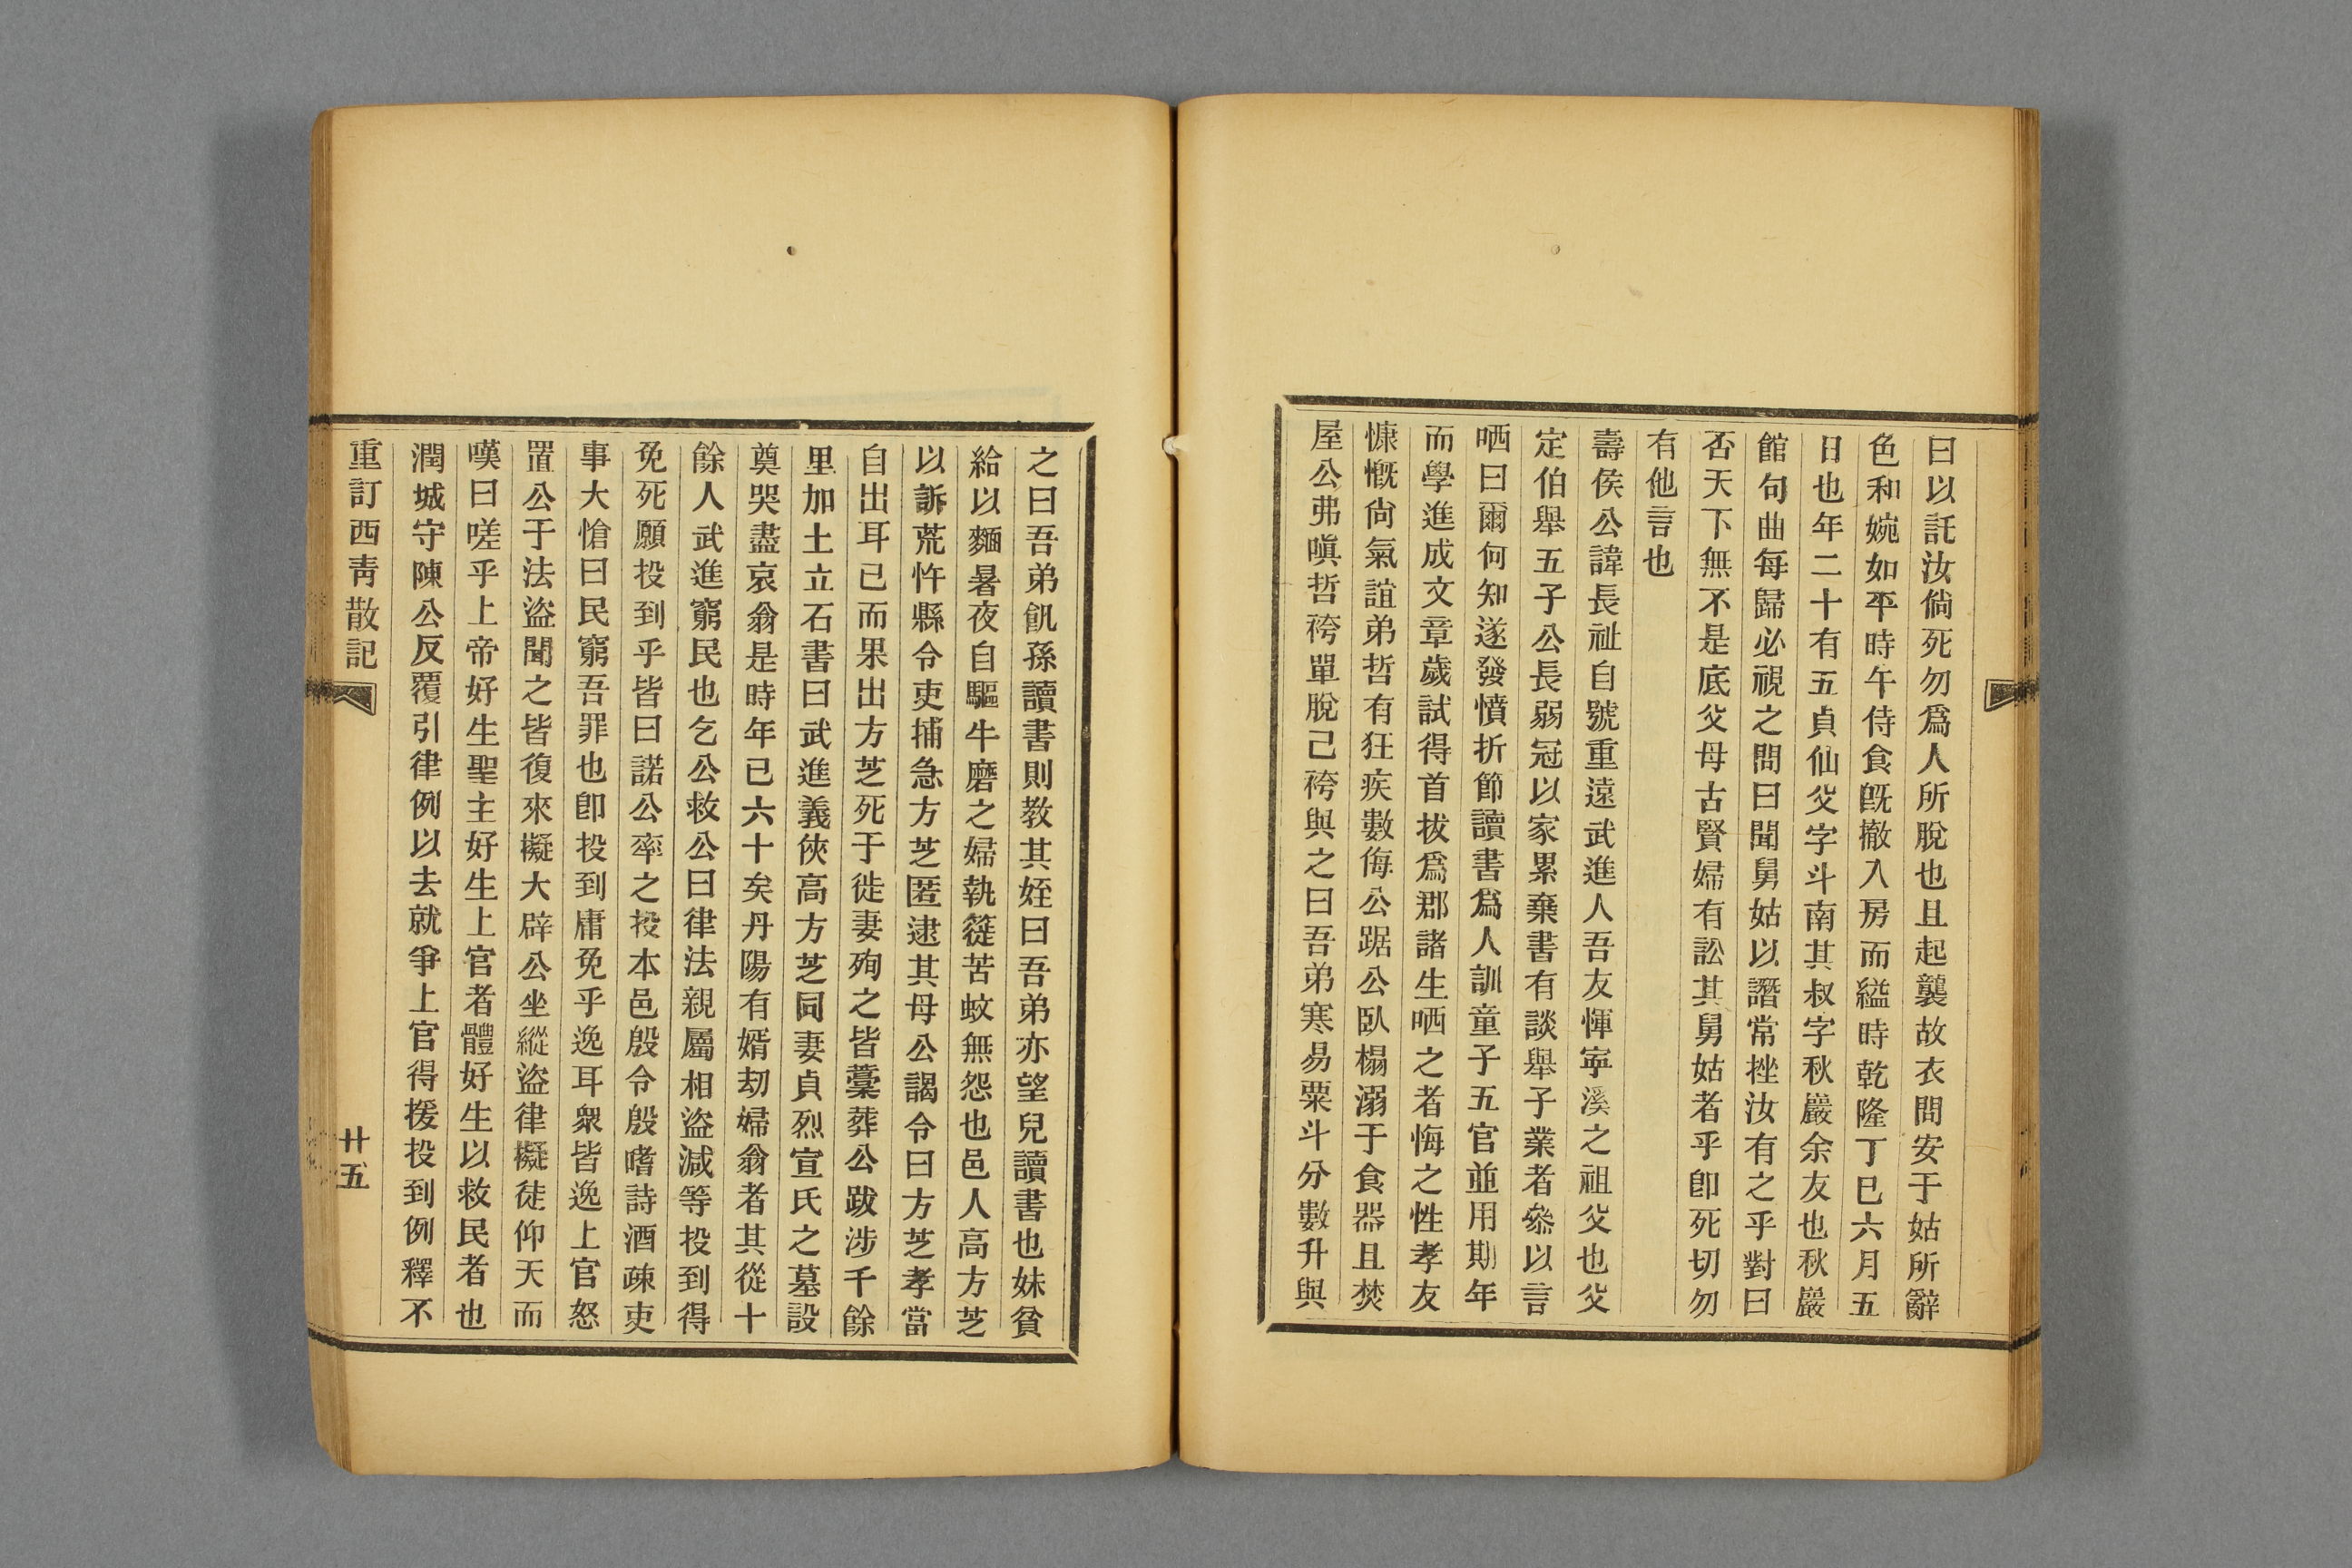 曰以託汝倘死勿爲人所脫也且起襲故衣問安于姑所辭
色和婉如平時午侍食旣撤入房而縊時乾隆丁巳六月五
日也年二十有五貞仙父字斗南其叔字秋巖余友也秋巖
館句曲每歸必視之問曰聞舅姑以譖常挫汝有之乎對曰
否天下無不是底父母古賢婦有訟其舅姑者乎卽死切勿
有他言也
壽侯公諱長祉自號重遠武進人吾友惲寧溪之祖父也父
定伯舉五子公長弱冠以家累棄書有談舉子業者叅以言
哂曰爾何知遂發憤折節讀書爲人訓童子五官並用期年
而學進成文章歲試得首拔爲郡諸生哂之者悔之性孝友
慷慨尙氣誼弟哲有狂疾數侮公踞公臥榻溺于食器且焚
屋公弗嗔哲袴單脫己袴與之曰吾弟寒易粟斗分數升與
之曰吾弟飢孫讀書則教其姪曰吾弟亦望兒讀書也妹貧
給以麵暑夜自驅牛磨之婦執簁苦蚊無怨也邑人高方芝
以訴荒忤縣令吏捕急方芝匿逮其母公謁令曰方芝孝當
自出耳已而果出方芝死于徙妻殉之皆藁葬公跋涉千餘
里加土立石書曰武進義俠高方芝同妻貞烈宣氏之墓設
奠哭盡哀翁是時年已六十矣丹陽有婿刧婦翁者其從十
餘人武進窮民也乞公救公曰律法親屬相盜減等投到得
免死願投到乎皆曰諾公率之投本邑殷令殷嗜詩酒疎吏
事大愴曰民窮吾罪也卽投到庸免乎逸耳衆皆逸上官怒
置公于法盜聞之皆復來擬大辟公坐縱盜律擬徒仰天而
嘆曰嗟乎上帝好生聖主好生上官者體好生以救民者也
潤城守陳公反覆引律例以去就爭上官得援投到例釋不
重訂西靑散記
廿五